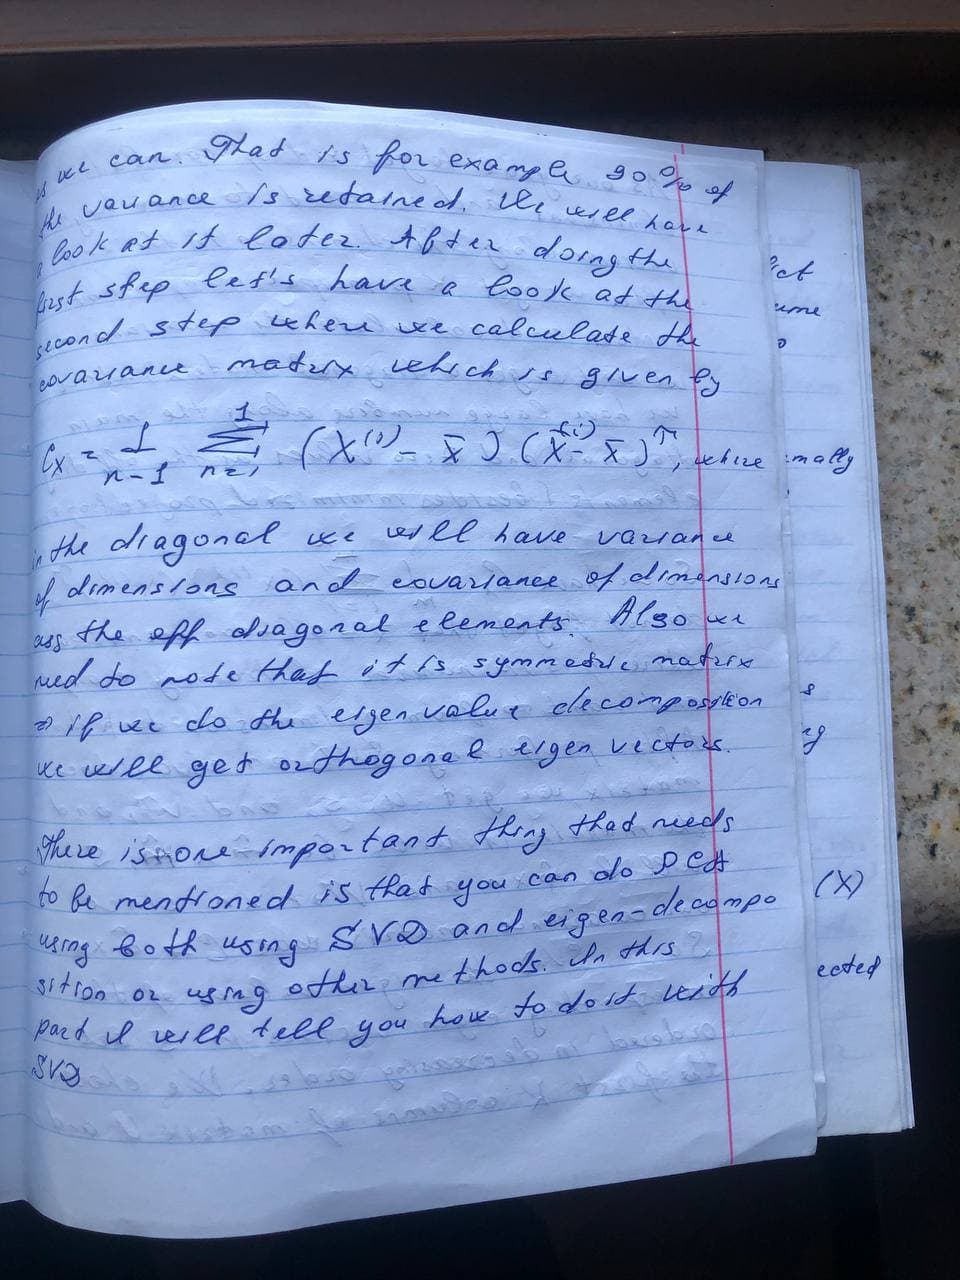 as we can. That is for example 90% of
the variance is retained. We will have
a look at it later. After doing the
first step let's have a look at the
second step where we calculate the
covariance matrix which is given by
Cx = 1/(n-1) Σ (X⁽ⁱ⁾ - x̄)(X⁽ⁱ⁾ - x̄)ᵀ, where
in the diagonal we will have variance
of dimensions and covariance of dimensions
the off diagonal elements. Also we
need to note that it is symmetric matrix
⇒ if we do the eigenvalue decomposition
we will get orthogonal eigen vectors.
There is one important thing that needs
to be mentioned is that you can do PCA
using both using SVD and eigen-decompo
sition or using other methods. In this
part I will tell you how to do it with
SVD
ume
mally
s
ng
(X)
ected